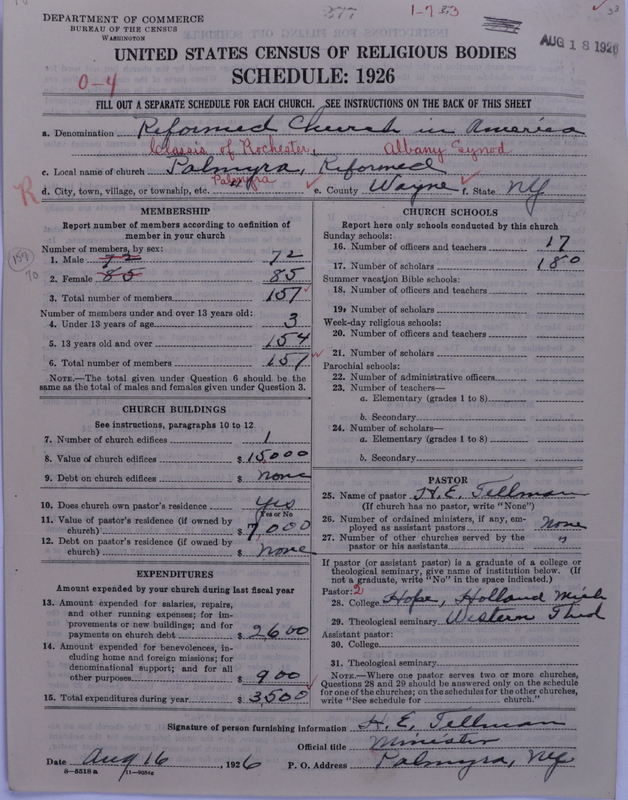 1-7
DEPARTMENT OF COMMERCE
BUREAU OF THE CENSUS
WASHINGTON
AUG 18 1926
UNITED STATES CENSUS OF RELIGIOUS BODIES
SCHEDULE: 1926
0-4
FILL OUT A SEPARATE SCHEDULE FOR EACH CHURCH. SEE INSTRUCTIONS ON THE BACK OF THIS SHEET
a. Denomination Reformed Church in America
Classis of Rochester, Albany Synod
c. Local name of church Palmyra, Reformed
R
d. City, town, village, or township, etc. Palmyra e. County Wayne f. State NY
MEMBERSHIP
Report number of members according to definition of
member in your church
Number of members, by sex:
1. Male 72 72
2. Female 85 85
3. Total number of members 157
Number of members under and over 13 years old:
4. Under 13 years of age 3
5. 13 years old and over 154
6. Total number of members 157
NOTE.—The total given under Question 6 should be the
same as the total of males and females given under Question 3.
CHURCH BUILDINGS
See instructions, paragraphs 10 to 12
7. Number of church edifices 1
8. Value of church edifices $ 15,000
9. Debt on church edifices $ none
10. Does church own pastor's residence yes
Yes or No
11. Value of pastor's residence (if owned by
church) $ 7,000
12. Debt on pastor's residence (if owned by
church) $ none
EXPENDITURES
Amount expended by your church during last fiscal year
13. Amount expended for salaries, repairs,
and other running expenses; for im-
provements or new buildings; and for
payments on church debt $ 2600
14. Amount expended for benevolences, in-
cluding home and foreign missions; for
denominational support; and for all
other purposes $ 900
15. Total expenditures during year $ 3,500
CHURCH SCHOOLS
Report here only schools conducted by this church
Sunday schools:
16. Number of officers and teachers 17
17. Number of scholars 180
Summer vacation Bible schools:
18. Number of officers and teachers
19. Number of scholars
Week-day religious schools:
20. Number of officers and teachers
21. Number of scholars
Parochial schools:
22. Number of administrative officers
23. Number of teachers—
a. Elementary (grades 1 to 8)
b. Secondary
24. Number of scholars—
a. Elementary (grades 1 to 8)
b. Secondary
PASTOR
25. Name of pastor H. E. Tellman
(If church has no pastor, write "None")
26. Number of ordained ministers, if any, em-
ployed as assistant pastors none
27. Number of other churches served by the
pastor or his assistants "
If pastor (or assistant pastor) is a graduate of a college or
theological seminary, give name of institution below. (If
not a graduate, write "No" in the space indicated.)
Pastor: 2
28. College Hope, Holland Mich
29. Theological seminary Western Theol
Assistant pastor:
30. College
31. Theological seminary
NOTE.—Where one pastor serves two or more churches,
Questions 28 and 29 should be answered only on the schedule
for one of the churches; on the schedules for the other churches,
write "See schedule for church."
Signature of person furnishing information H. E. Tellman
Official title Minister
Date Aug 16, 1926 P. O. Address Palmyra, NY
8-5518a 11-9034